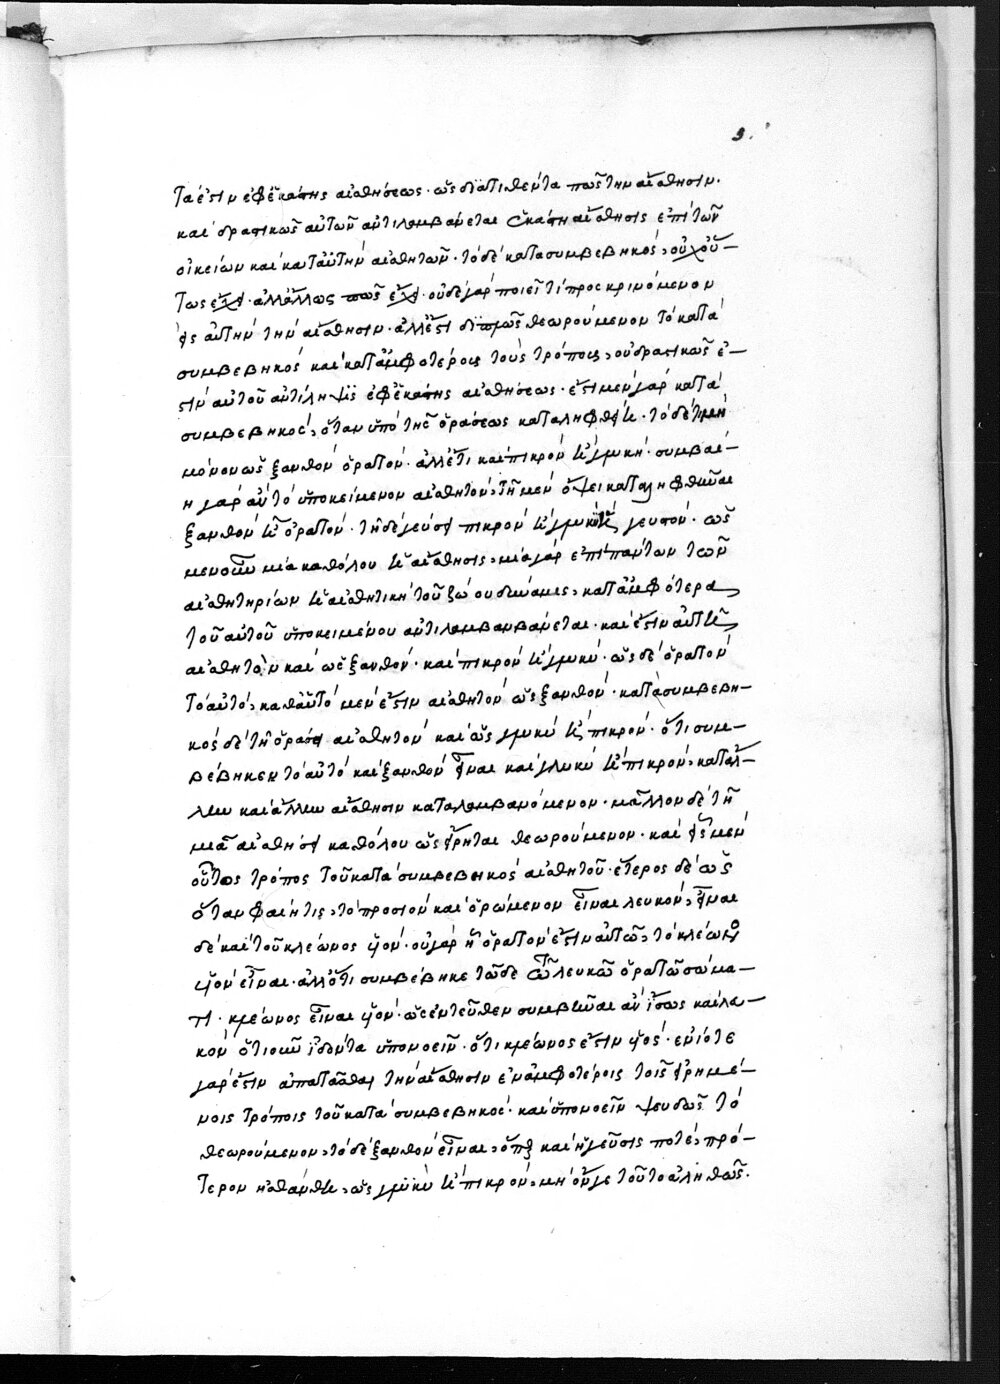 9.
τά ἐστιν ἐφ' ἑκάστης αἰσθήσεως· ὡς διατιθέντα πως τὴν αἴσθησιν.
καὶ δραστικῶς αὐτῶν ἀντιλαμβάνεται ἑκάστη αἴσθησις ἐπὶ τῶν
οἰκείων καὶ κατ' αὐτὴν αἰσθητῶν· τὸ δὲ κατὰ συμβεβηκὸς, οὐχ οὕ-
τως ἔχει· ἀλλ' ἄλλως πως ἔχει· οὐδὲ γὰρ ποιεῖ τι προσκρινόμενον
εἰς αὐτὴν τὴν αἴσθησιν· ἀλλ' ἔστι θεωρούμενον τὸ κατὰ
συμβεβηκὸς καὶ κατ' ἀμφοτέρους τοὺς τρόπους, οὐ δραστικῶς ἐ-
στὶν αὐτοῦ ἀντίληψις ἐφ' ἑκάστης αἰσθήσεως· ἔστι μὲν γὰρ κατὰ
συμβεβηκὸς, ὅταν ὑπὸ τῆς ὁράσεως καταληφθείη· τὸ δέ τι μὴ
μόνον ὡς ξανθὸν ὁρατὸν· ἀλλ' ἔτι καὶ πικρὸν ἢ γλυκὺ· συμβαί-
η γὰρ ἂν τὸ ὑποκείμενον αἰσθητὸν, τῇ μὲν ὄψει καταληφθῆναι
ξανθὸν ὁρατὸν· τῇ δὲ γεύσει πικρὸν ἢ γλυκὺ γευστόν· ὡς
μέντοι μία καθόλου ἡ αἴσθησις, μία γὰρ ἐπὶ πάντων τῶν
αἰσθητηρίων ἡ αἰσθητικὴ τοῦ ζώου δύναμις, κατ' ἀμφότερα
τοῦ αὐτοῦ ὑποκειμένου ἀντιλαμβανβάνεται· καὶ ἔστιν αὐτῇ
αἰσθητὸν καὶ ὡς ξανθὸν· καὶ πικρὸν ἢ γλυκὺ· ὡς δὲ ὁρατὸν
τὸ αὐτὸ, καθ' αὑτὸ μὲν ἔστιν αἰσθητὸν ὡς ξανθὸν· κατὰ συμβεβη-
κὸς δὲ τῇ ὁράσει αἰσθητὸν καὶ ὡς γλυκὺ ἢ πικρὸν· ὅτι συμ-
βέβηκεν τὸ αὐτὸ καὶ ξανθὸν εἶναι καὶ γλυκὺ ἢ πικρὸν, κατ' ἄλ-
λην καὶ ἄλλην αἴσθησιν καταλαμβανόμενον· μᾶλλον δὲ τῇ
μιᾷ αἰσθήσει καθόλου ὡς εἴρηται θεωρούμενον· καὶ εἷς μὲν
οὗτος τρόπος τοῦ κατὰ συμβεβηκὸς αἰσθητοῦ· ἕτερος δὲ ὡς
ὅταν φαίη τις, τὸ προσιὸν καὶ ὁρώμενον εἶναι λευκὸν, εἶναι
δὲ καὶ τοῦ κλέωνος υἱὸν· οὐ γὰρ ᾗ ὁρατὸν ἔστιν αὐτῷ, τὸ κλέωνος
υἱὸν εἶναι· ἀλλ' ὅτι συμβέβηκε τῷδε τῷ λευκῷ ὁρατῷ σώμα-
τι· κλέωνος εἶναι υἱὸν· ὡς ἐντεῦθεν συμβῆναι ἂν ἴσως καὶ λευ-
κὸν ὁτιοῦν ἰδόντα ὑπονοεῖν· ὅτι κλέωνος ἐστὶν υἱὸς· ἐνίοτε
γὰρ ἔστιν ἀπατᾶσθαι τὴν αἴσθησιν ἐν ἀμφοτέροις τοῖς εἰρημέ-
νοις τρόποις τοῦ κατὰ συμβεβηκὸς· καὶ ὑπονοεῖν ψευδῶς τὸ
θεωρούμενον, τόδε ξανθὸν εἶναι, ὅπερ καὶ ἡ γεῦσίς ποτε, πρό-
τερον ᾐσθάνθη, ὡς γλυκὺ ἢ πικρὸν, μὴ ὄν γε τοῦτο ἀληθῶς.